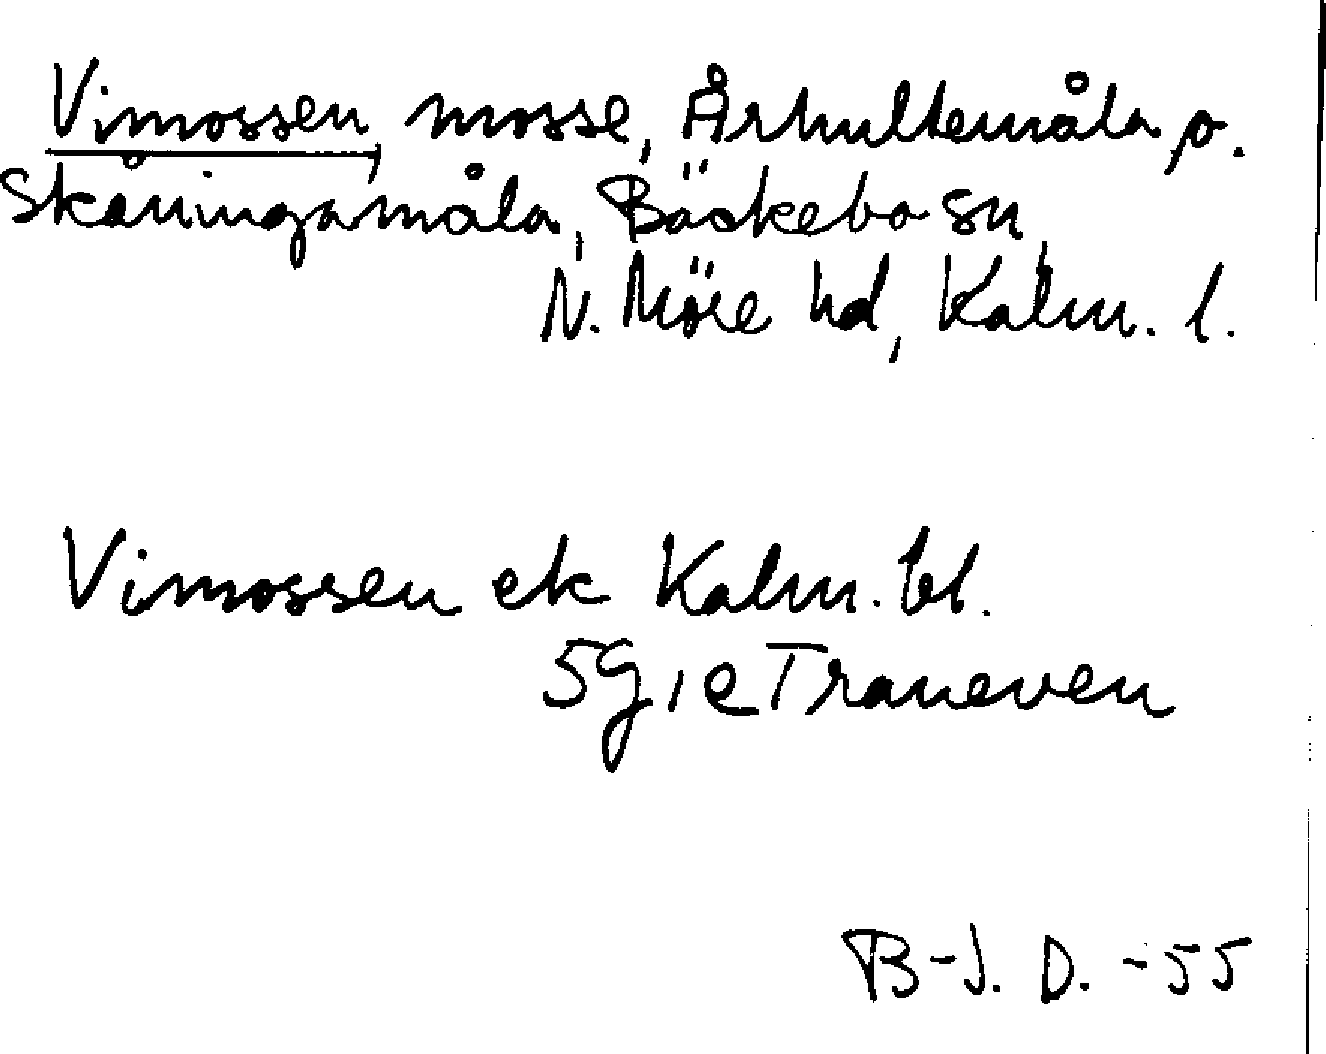 Vimossen, mosse, Århultemåla o.
Skåningamåla, Bäckebo sn,
N. Möre hd, Kalm. l.
Vimossen ek Kalm. bl.
5g, e Traneven
B-J. D. -55